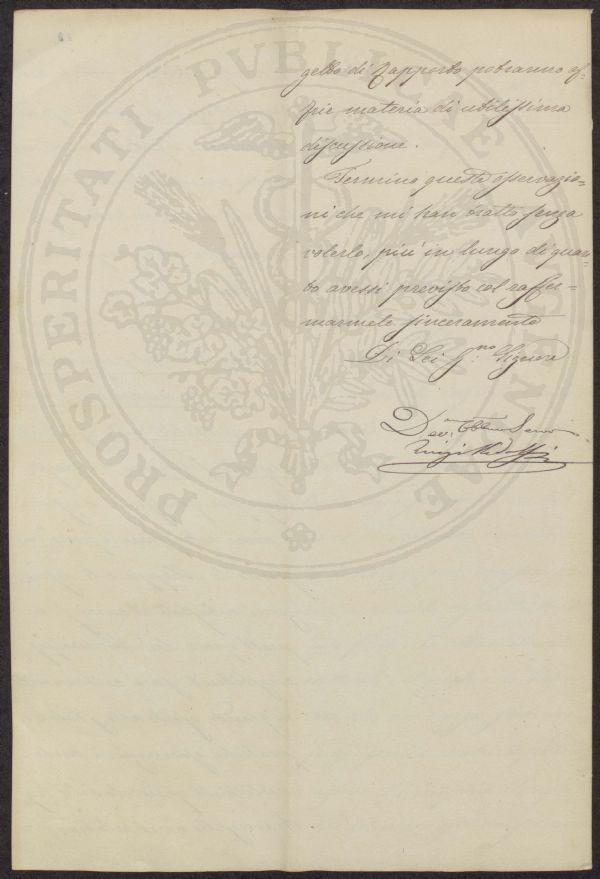 getto di rapporto potranno of-
frir materia di utilissima
discussione.
Termino queste osservazio-
ni che mi han tratto senza
volerlo, più in lungo di quan-
to avessi previsto col raffer-
marmele sinceramente
Di Lei Sig.no Signore
Dev. Obbmo Servo
Luigi Ridolfi
PROSPERITATI PVBLICAE